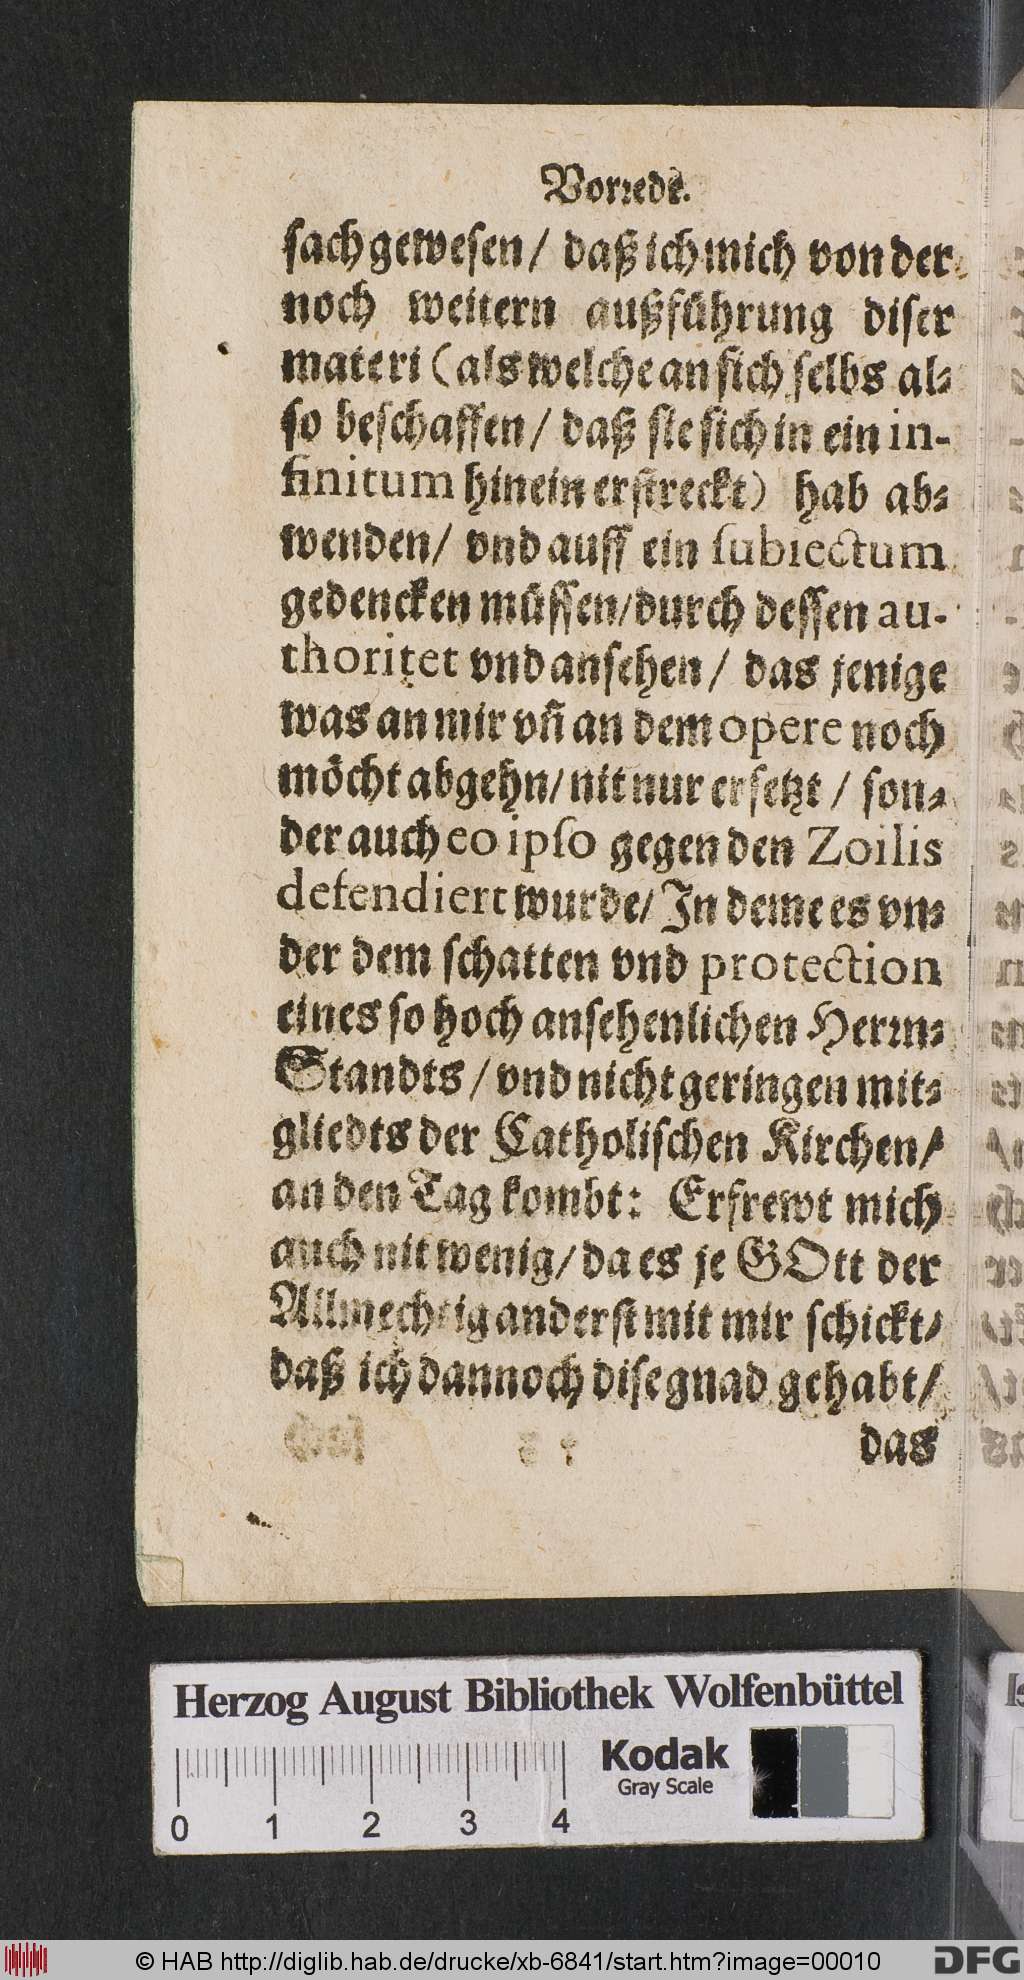 Vorrede.
sach gewesen / daß ich mich von der
noch weitern außführung diser
materi (als welche an sich selbs al-
so beschaffen / daß sie sich in ein in-
finitum hinein erstreckt) hab ab-
wenden / vnd auff ein subiectum
gedencken müssen / durch dessen au-
thoritet vnd ansehen / das jenige
was an mir vñ an dem opere noch
möcht abgehn / nit nur ersetzt / son-
der auch eo ipso gegen den Zoilis
defendiert wurde / In deme es vn-
der dem schatten vnd protection
eines so hoch ansehenlichen Herrn-
Standts / vnd nicht geringen mit-
gliedts der Catholischen Kirchen /
an den Tag kombt: Erfrewt mich
auch nit wenig / da es je GOtt der
Allmechtig anderst mit mir schickt /
daß ich dannoch dise gnad gehabt /
das
Herzog August Bibliothek Wolfenbüttel
Kodak
Gray Scale
0 1 2 3 4
© HAB http://diglib.hab.de/drucke/xb-6841/start.htm?image=00010
DFG